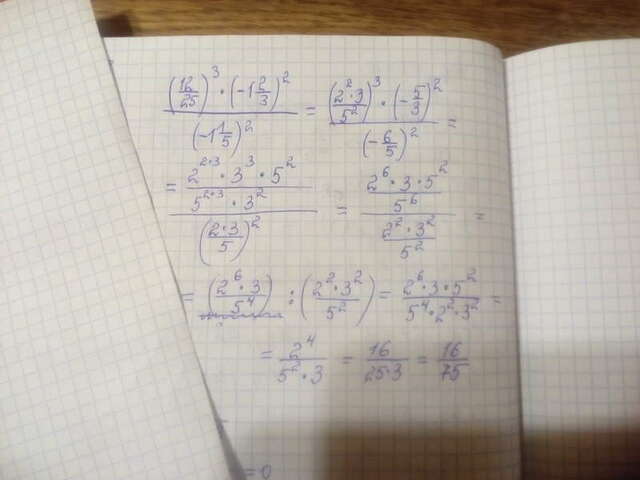 ((12/25)^3 · (-1 2/3)^2) / (-1 1/5)^2 = ((2^2·3/5^2)^3 · (-5/3)^2) / (-6/5)^2 =
= ((2^{2·3} · 3^3 · 5^2) / (5^{2·3} · 3^2)) / (2·3/5)^2 = ((2^6 · 3 · 5^2) / 5^6) / ((2^2 · 3^2) / 5^2) =
= (2^6 · 3 / 5^4) : (2^2 · 3^2 / 5^2) = (2^6 · 3 · 5^2) / (5^4 · 2^2 · 3^2) =
= 2^4 / (5^2 · 3) = 16 / (25·3) = 16/75
= 0